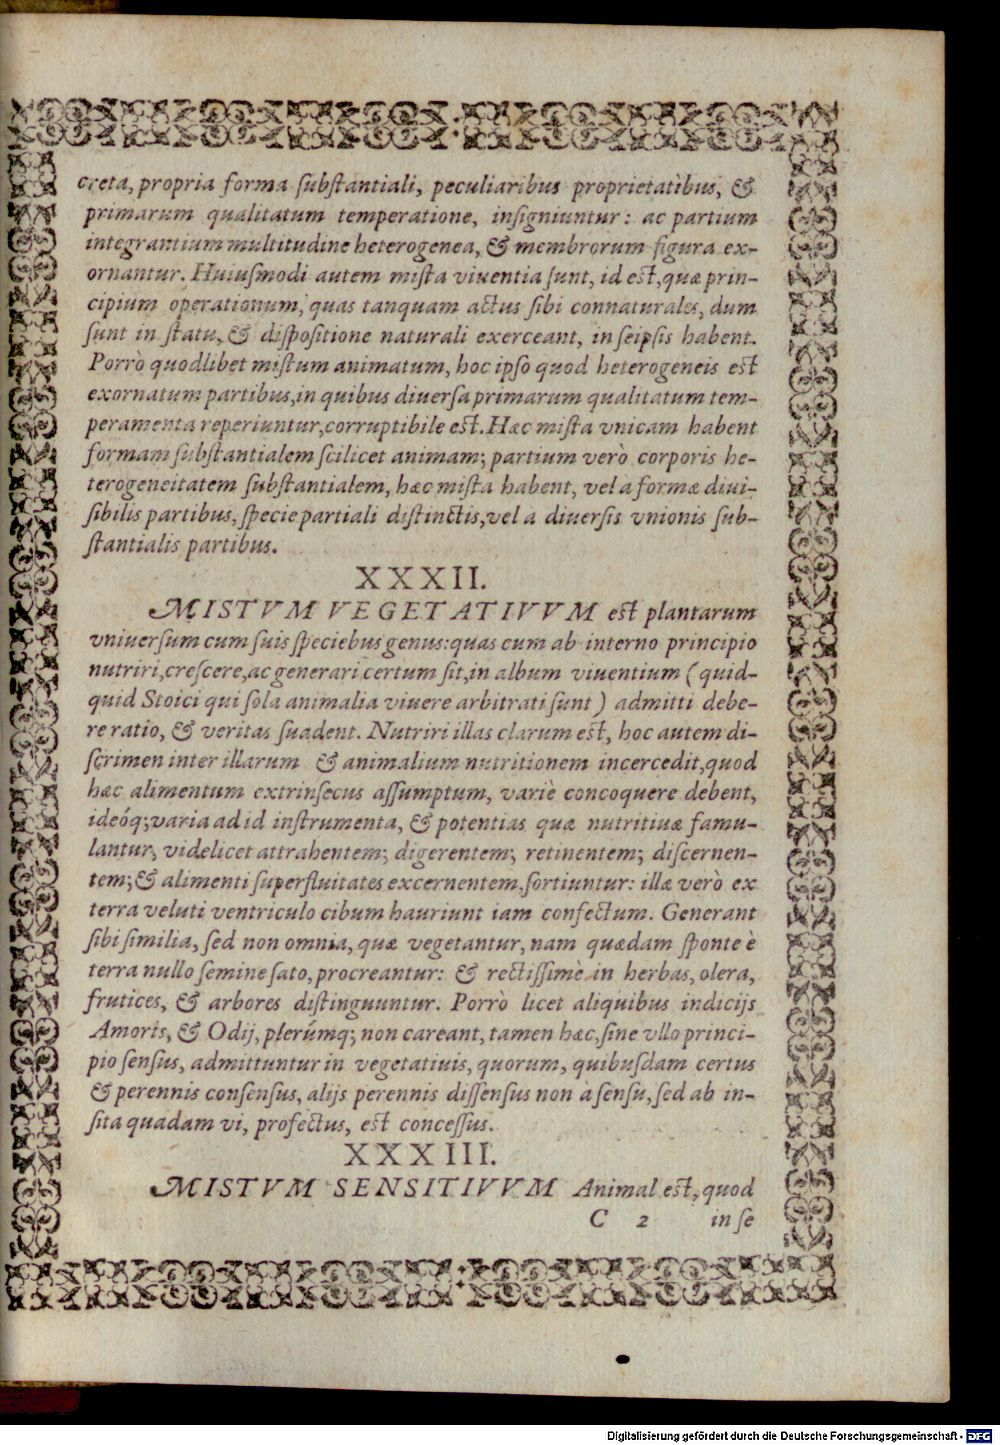 creta, propria forma ſubſtantiali, peculiaribus proprietatibus, &
primarum qualitatum temperatione, inſigniuntur: ac partium
integrantium multitudine heterogenea, & membrorum figura ex-
ornantur. Huiuſmodi autem miſta viuentia ſunt, id eſt, quæ prin-
cipium operationum, quas tanquam actus ſibi connaturales, dum
ſunt in ſtatu, & diſpoſitione naturali exerceant, in ſeipſis habent.
Porrò quodlibet miſtum animatum, hoc ipſo quod heterogeneis eſt
exornatum partibus, in quibus diuerſa primarum qualitatum tem-
peramenta reperiuntur, corruptibile eſt. Hæc miſta vnicam habent
formam ſubſtantialem ſcilicet animam; partium verò corporis he-
terogeneitatem ſubſtantialem, hæc miſta habent, vel a formæ diui-
ſibilis partibus, ſpecie partiali diſtinctis, vel a diuerſis vnionis ſub-
ſtantialis partibus.
XXXII.
MISTVM VEGETATIVVM eſt plantarum
vniuerſum cum ſuis ſpeciebus genus: quas cum ab interno principio
nutriri, creſcere, ac generari certum ſit, in album viuentium (quid-
quid Stoici qui ſola animalia viuere arbitrati ſunt) admitti debe-
re ratio, & veritas ſuadent. Nutriri illas clarum eſt, hoc autem di-
ſcrimen inter illarum & animalium nutritionem incercedit, quod
hæc alimentum extrinſecus aſſumptum, variè concoquere debent,
ideóq; varia ad id inſtrumenta, & potentias quæ nutritiuæ famu-
lantur, videlicet attrahentem; digerentem; retinentem; diſcernen-
tem; & alimenti ſuperfluitates excernentem, ſortiuntur: illæ verò ex
terra veluti ventriculo cibum hauriunt iam confectum. Generant
ſibi ſimilia, ſed non omnia, quæ vegetantur, nam quædam ſponte è
terra nullo ſemine ſato, procreantur: & rectiſſimè in herbas, olera,
frutices, & arbores diſtinguuntur. Porrò licet aliquibus indicijs
Amoris, & Odij, plerúmq; non careant, tamen hæc, ſine vllo princi-
pio ſenſus, admittuntur in vegetatiuis, quorum, quibuſdam certus
& perennis conſenſus, alijs perennis diſſenſus non à ſenſu, ſed ab in-
ſita quadam vi, profectus, eſt conceſſus.
XXXIII.
MISTVM SENSITIVVM Animal eſt, quod
C 2 in ſe
Digitalisierung gefördert durch die Deutsche Forschungsgemeinschaft - DFG